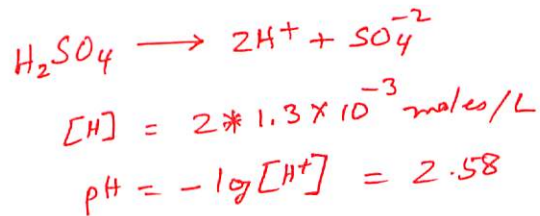 H₂SO₄ ⟶ 2H⁺ + SO₄⁻²
[H] = 2 * 1.3 × 10⁻³ moles/L
pH = - log [H⁺] = 2.58